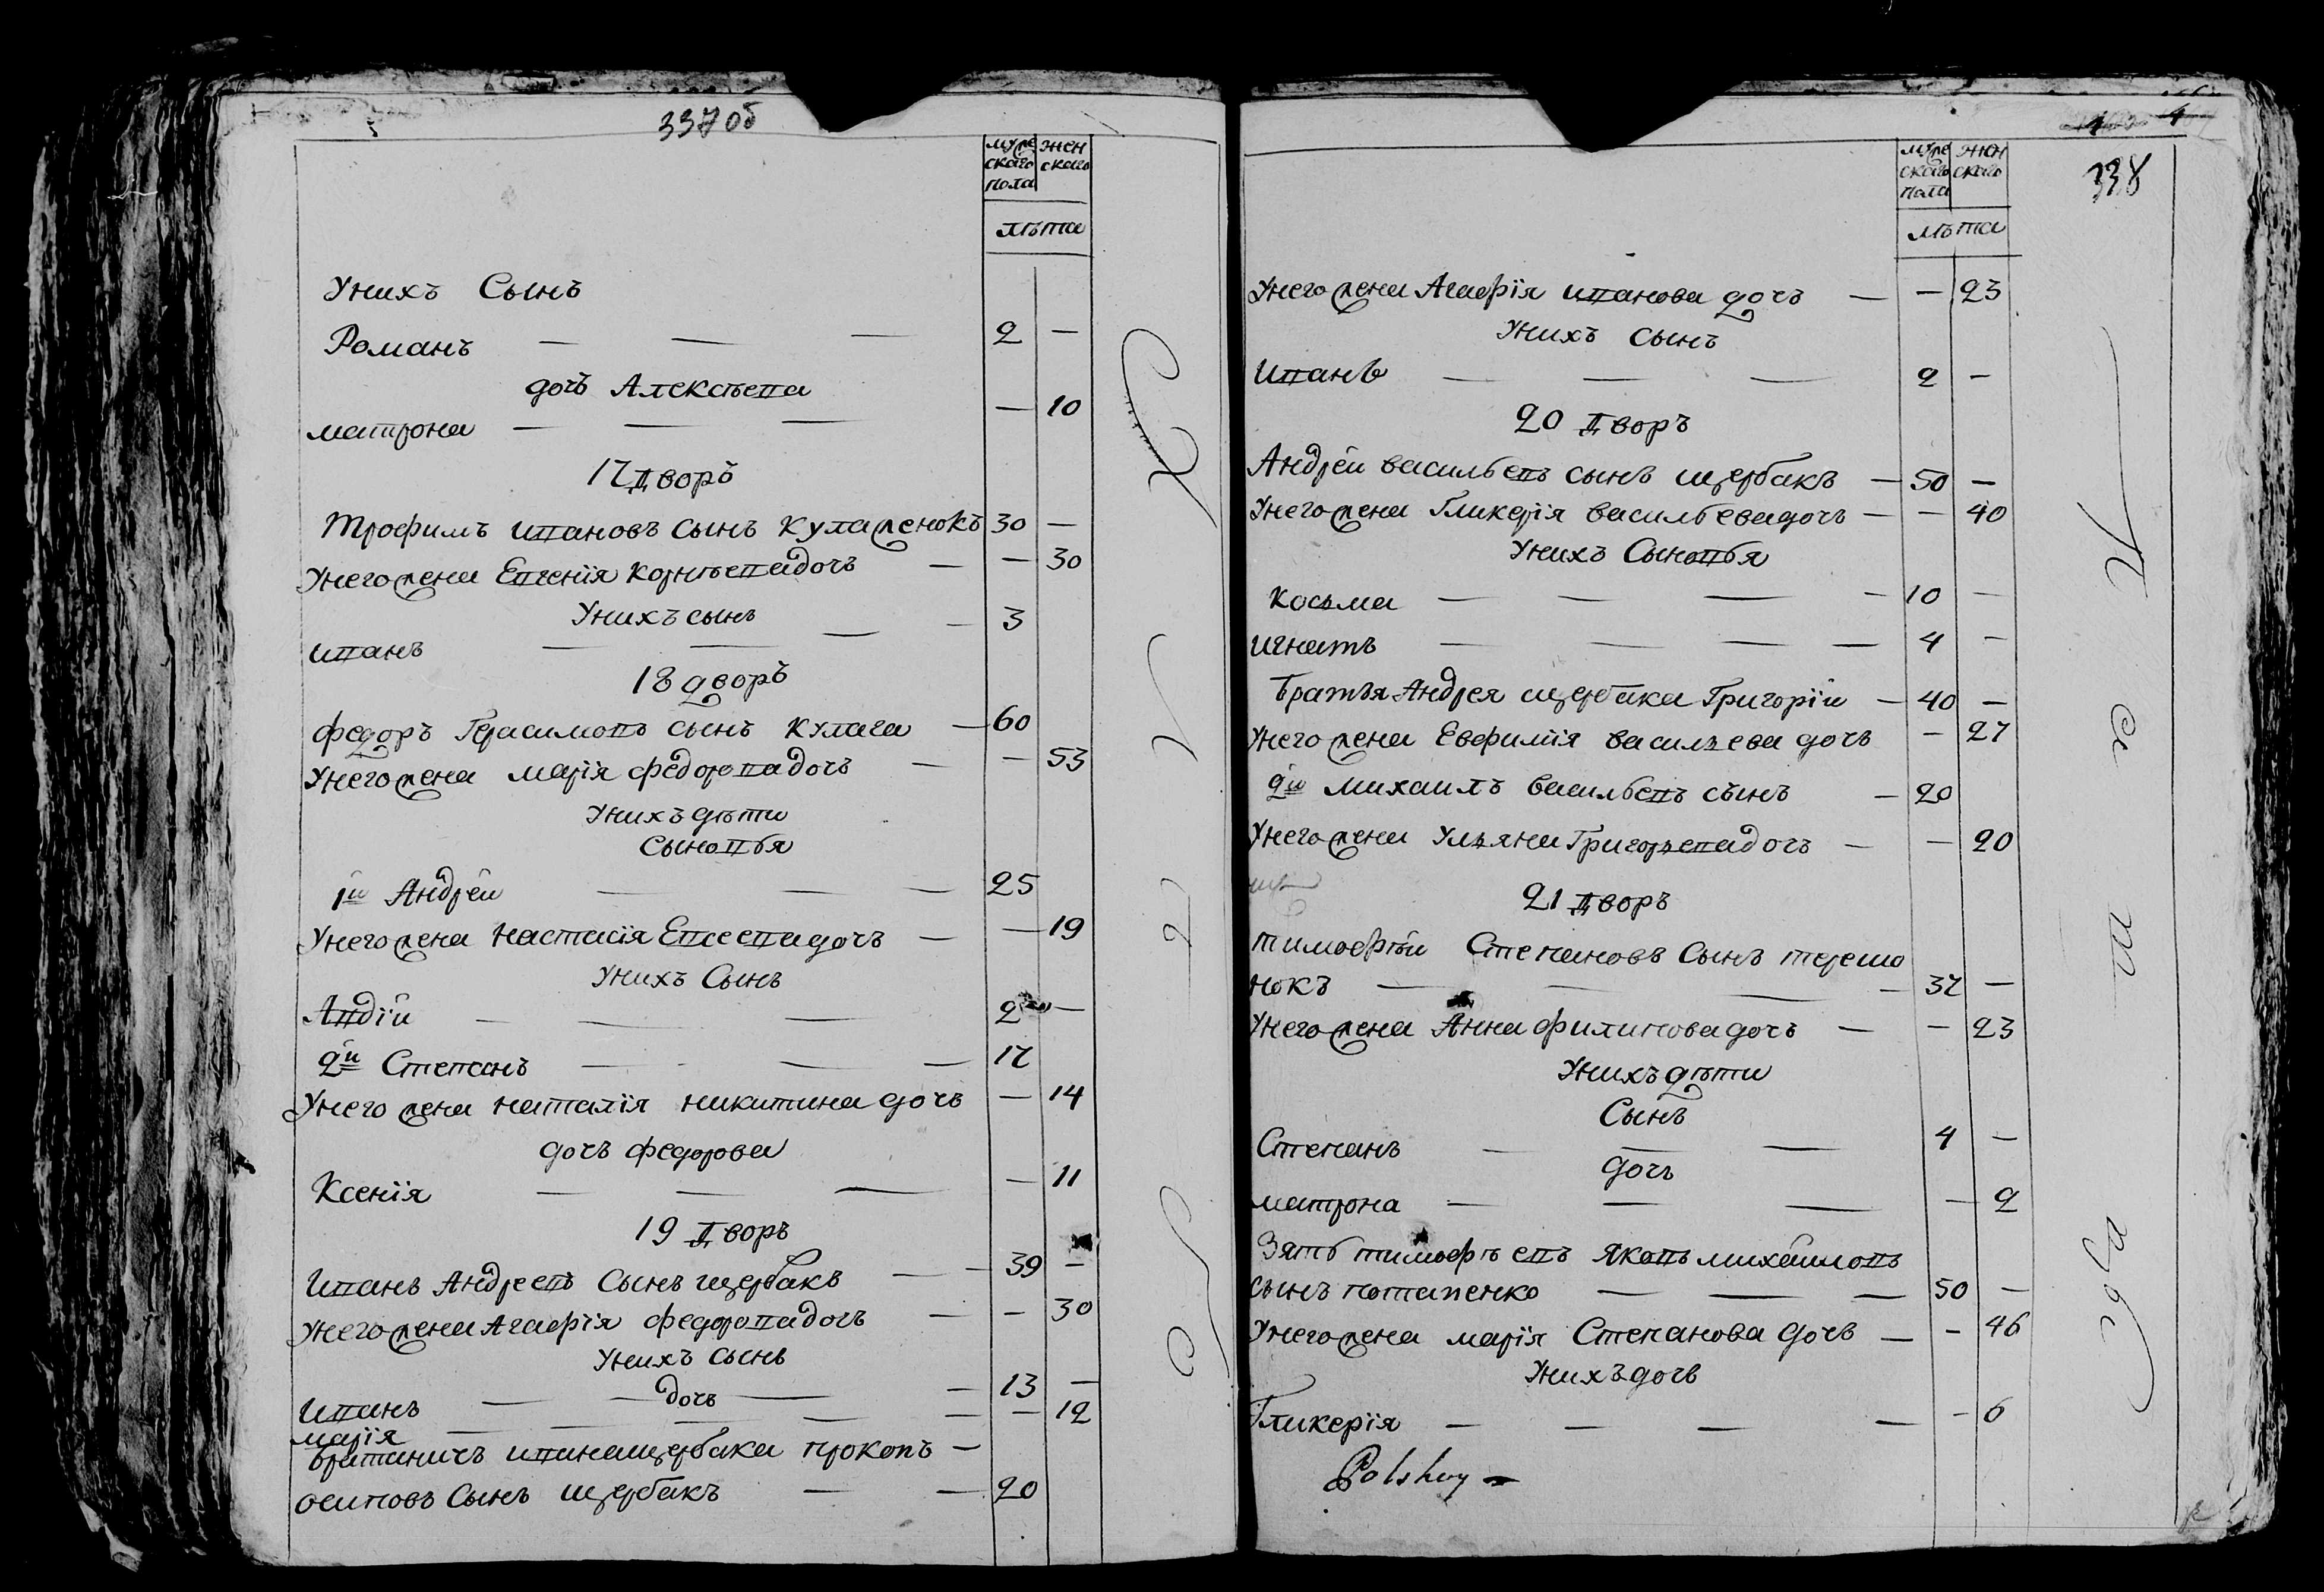 337 об
муже
ского
пола
жен
ского
лѣта
Унихъ Сынъ
Романъ — — — 2 —
дочь Алексѣева
матрона — — — — 10
17 Дворъ
Трофимъ ивановъ сынъ кулаженокъ 30 —
Унего жена Евгенїя корнѣевадочь — — 30
Унихъ сынъ
иванъ — — — — 3
18 дворъ
федоръ Герасимовъ сынъ кулага — 60
Унего жена марїя федоровадочь — — 53
Унихъ дѣти
сыновья
1й Андрей — — — 25
Унего жена настасїя Евсеевадочь — — 19
Унихъ Сынъ
Авдїй — — — 2 —
2й Степанъ — — — 17
Унего жена наталїя никитина дочь — 14
дочь федорова
Ксенїя — — — — 11
19 Дворъ
Иванъ Андреевъ Сынъ щербакъ — — 39 —
Унего жена Агафїя федоровадочь — — 30
Унихъ сынъ
Иванъ — — — — 13 —
дочь
марїя — — — — — 12
братаничъ иванащербака прокопъ —
осиповъ Сынъ щербакъ — — 20
4
338
муже
ского
пола
жен
ского
лѣта
Унего жена Агафїя иванова дочь — — 23
Унихъ сынъ
Иванъ — — — 2 —
20 Дворъ
Андрей васильевъ сынъ щербакъ — 50 —
Унего жена Гликерїя васильевадочь — — 40
Унихъ Сыновья
Косьма — — — — 10 —
игнатъ — — — — 4 —
Братья Андрея щербака Григорїй — 40 —
Унего жена Евфимїя васильева дочь — 27
2й михаилъ васильевъ сынъ — 20
Унего жена ульяна Григорьевадочь — — 20
21 Дворъ
тимофѣй Степановъ Сынъ терешо
нокъ — — — — 37 —
Унего жена Анна филиповадочь — — 23
Унихъ дѣти
Сынъ
Степанъ — — — 4 —
дочь
матрона — — — — 2
Зять тимофѣевъ яковъ михайловъ
сынъ потапенко — — — 50 —
Унего жена марїя Степанова дочь — — 46
Унихъ дочь
Гликерїя — — — — — 6